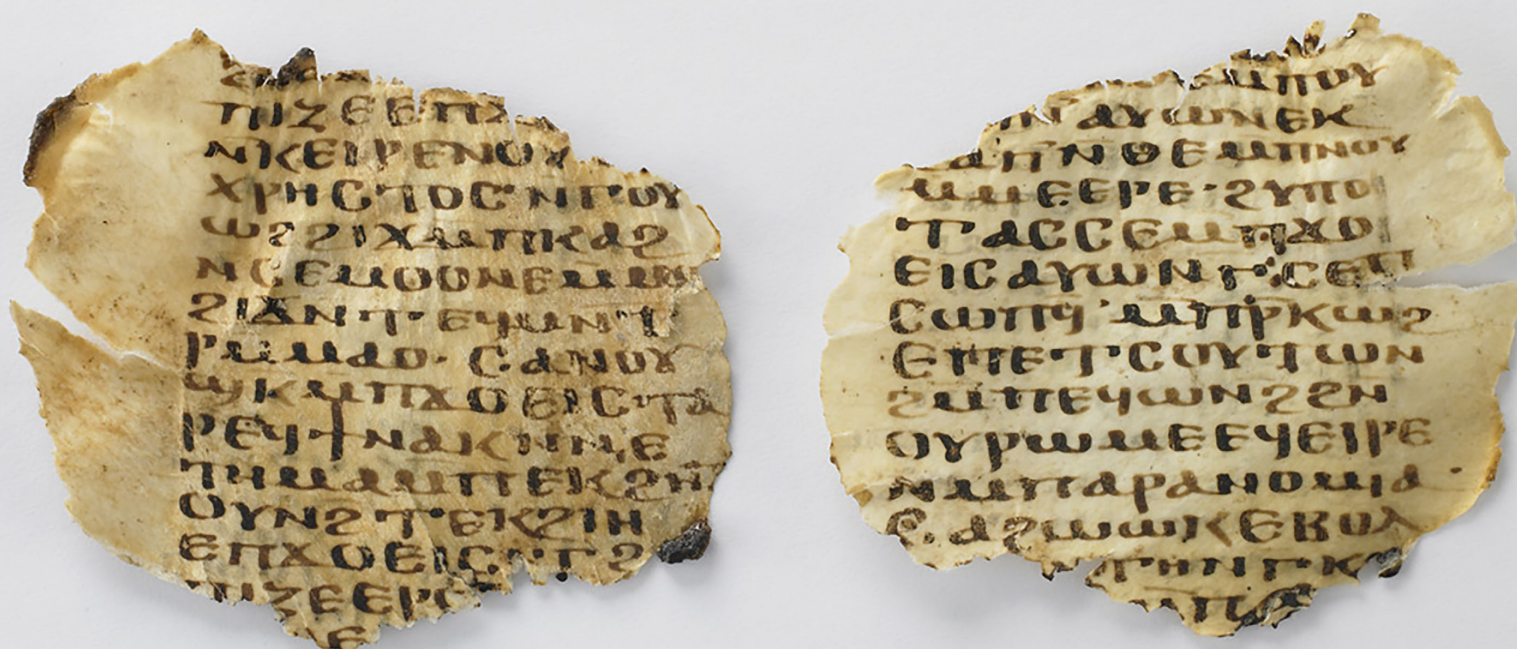 ⲡⲓⲍⲉⲉⲡϫ
ⲛⲕⲉⲓⲣⲉⲛⲟⲩ
ⲭⲣⲏⲥⲧⲟⲥ·ⲛⲅⲟⲩ
ⲱϩϩⲓϫⲙⲡⲕⲁϩ
ⲛⲥⲉⲙⲟⲟⲛⲉⲙⲙⲟⲕ
ϩⲓϫⲛⲧⲉϥⲙⲛⲧ
ⲣⲙⲙⲁⲟ·ⲥⲁⲛⲟⲩ
ϣⲕⲙⲡϫⲟⲉⲓⲥ·ⲧⲁ
ⲣⲉϥϯⲛⲁⲕⲛⲛⲉ
ⲧⲏⲙⲁⲙⲡⲉⲕϩⲏⲧ
ⲟⲩⲛϩⲧⲉⲕϩⲓⲏ
ⲉⲡϫⲟⲉⲓⲥ·ⲛⲅϩ
ⲡⲓⲍⲉⲉⲣⲟ
ⲙⲡⲟⲩ
ⲛⲁⲩⲱⲛⲉⲕ
ϩⲁⲡⲛⲑⲉⲙⲡⲛⲟⲩ
ⲙⲙⲉⲉⲣⲉ·ϩⲩⲡⲟ
ⲧⲁⲥⲥⲉⲙⲡϫⲟ
ⲉⲓⲥⲁⲩⲱⲛⲅⲥⲉⲡ
ⲥⲱⲡϥ·ⲙⲡⲣⲕⲱϩ
ⲉⲡⲉⲧⲥⲟⲩⲧⲱⲛ
ϩⲙⲡⲉϥⲱⲛϩϩⲛ
ⲟⲩⲣⲱⲙⲉⲉϥⲉⲓⲣⲉ
ⲛⲙⲡⲁⲣⲁⲛⲟⲙⲓⲁ·
ⲥⲁϩⲱⲱⲕⲉⲃⲟⲗ
ⲧⲏⲛⲅⲕ